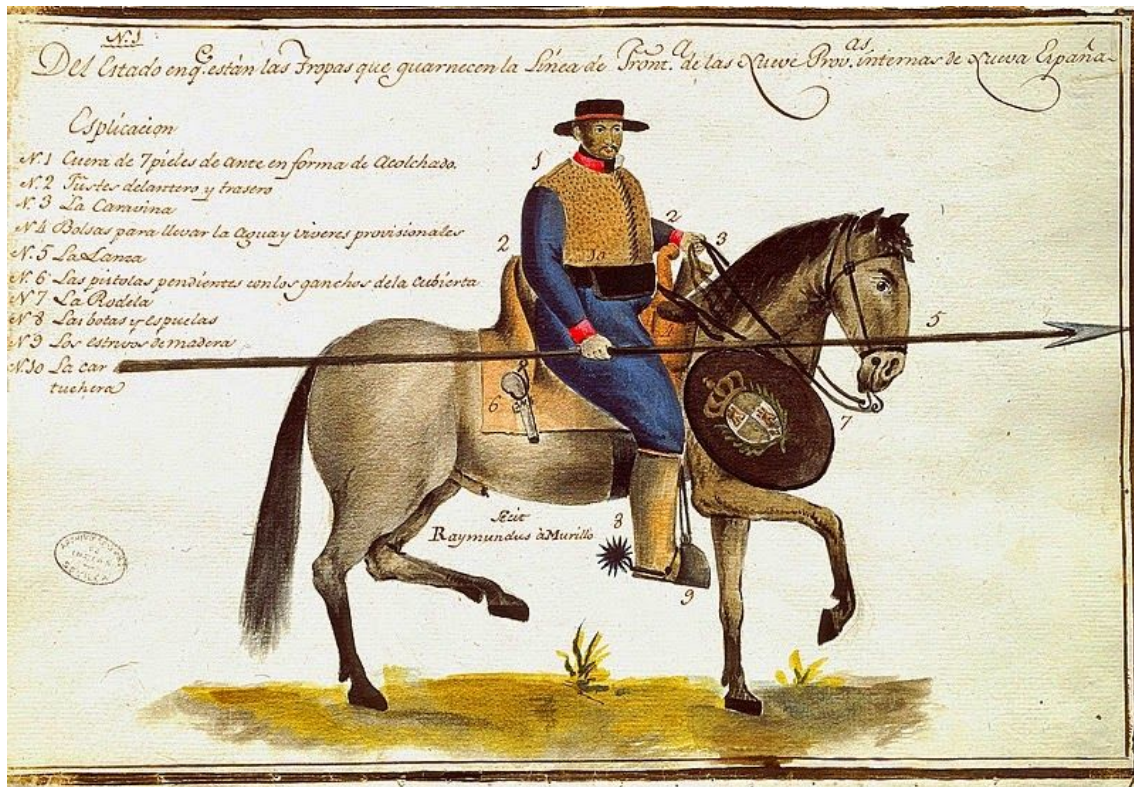 N.1
Del Estado en q.e están las Tropas que guarnecen la Línea de Front.a de las Nueve Prov.as internas de Nueva España
Esplicacion
N.1 Cuera de 7 pieles de ante en forma de Acolchado.
N.2 Fustes delantero y trasero
N.3 La Caravina
N.4 Bolsas para llevar la Agua y viveres provisionales
N.5 La Lanza
N.6 Las pistolas pendientes con los ganchos de la cubierta
N.7 La Rodela
N.8 Las botas y espuelas
N.9 Los estrivos de madera
N.10 La car
tuchera
1
2
2
3
10
4
5
6
7
8
9
Fecit
Raymundus à Murillo
ARCHIVO
DE
INDIAS
SEVILLA